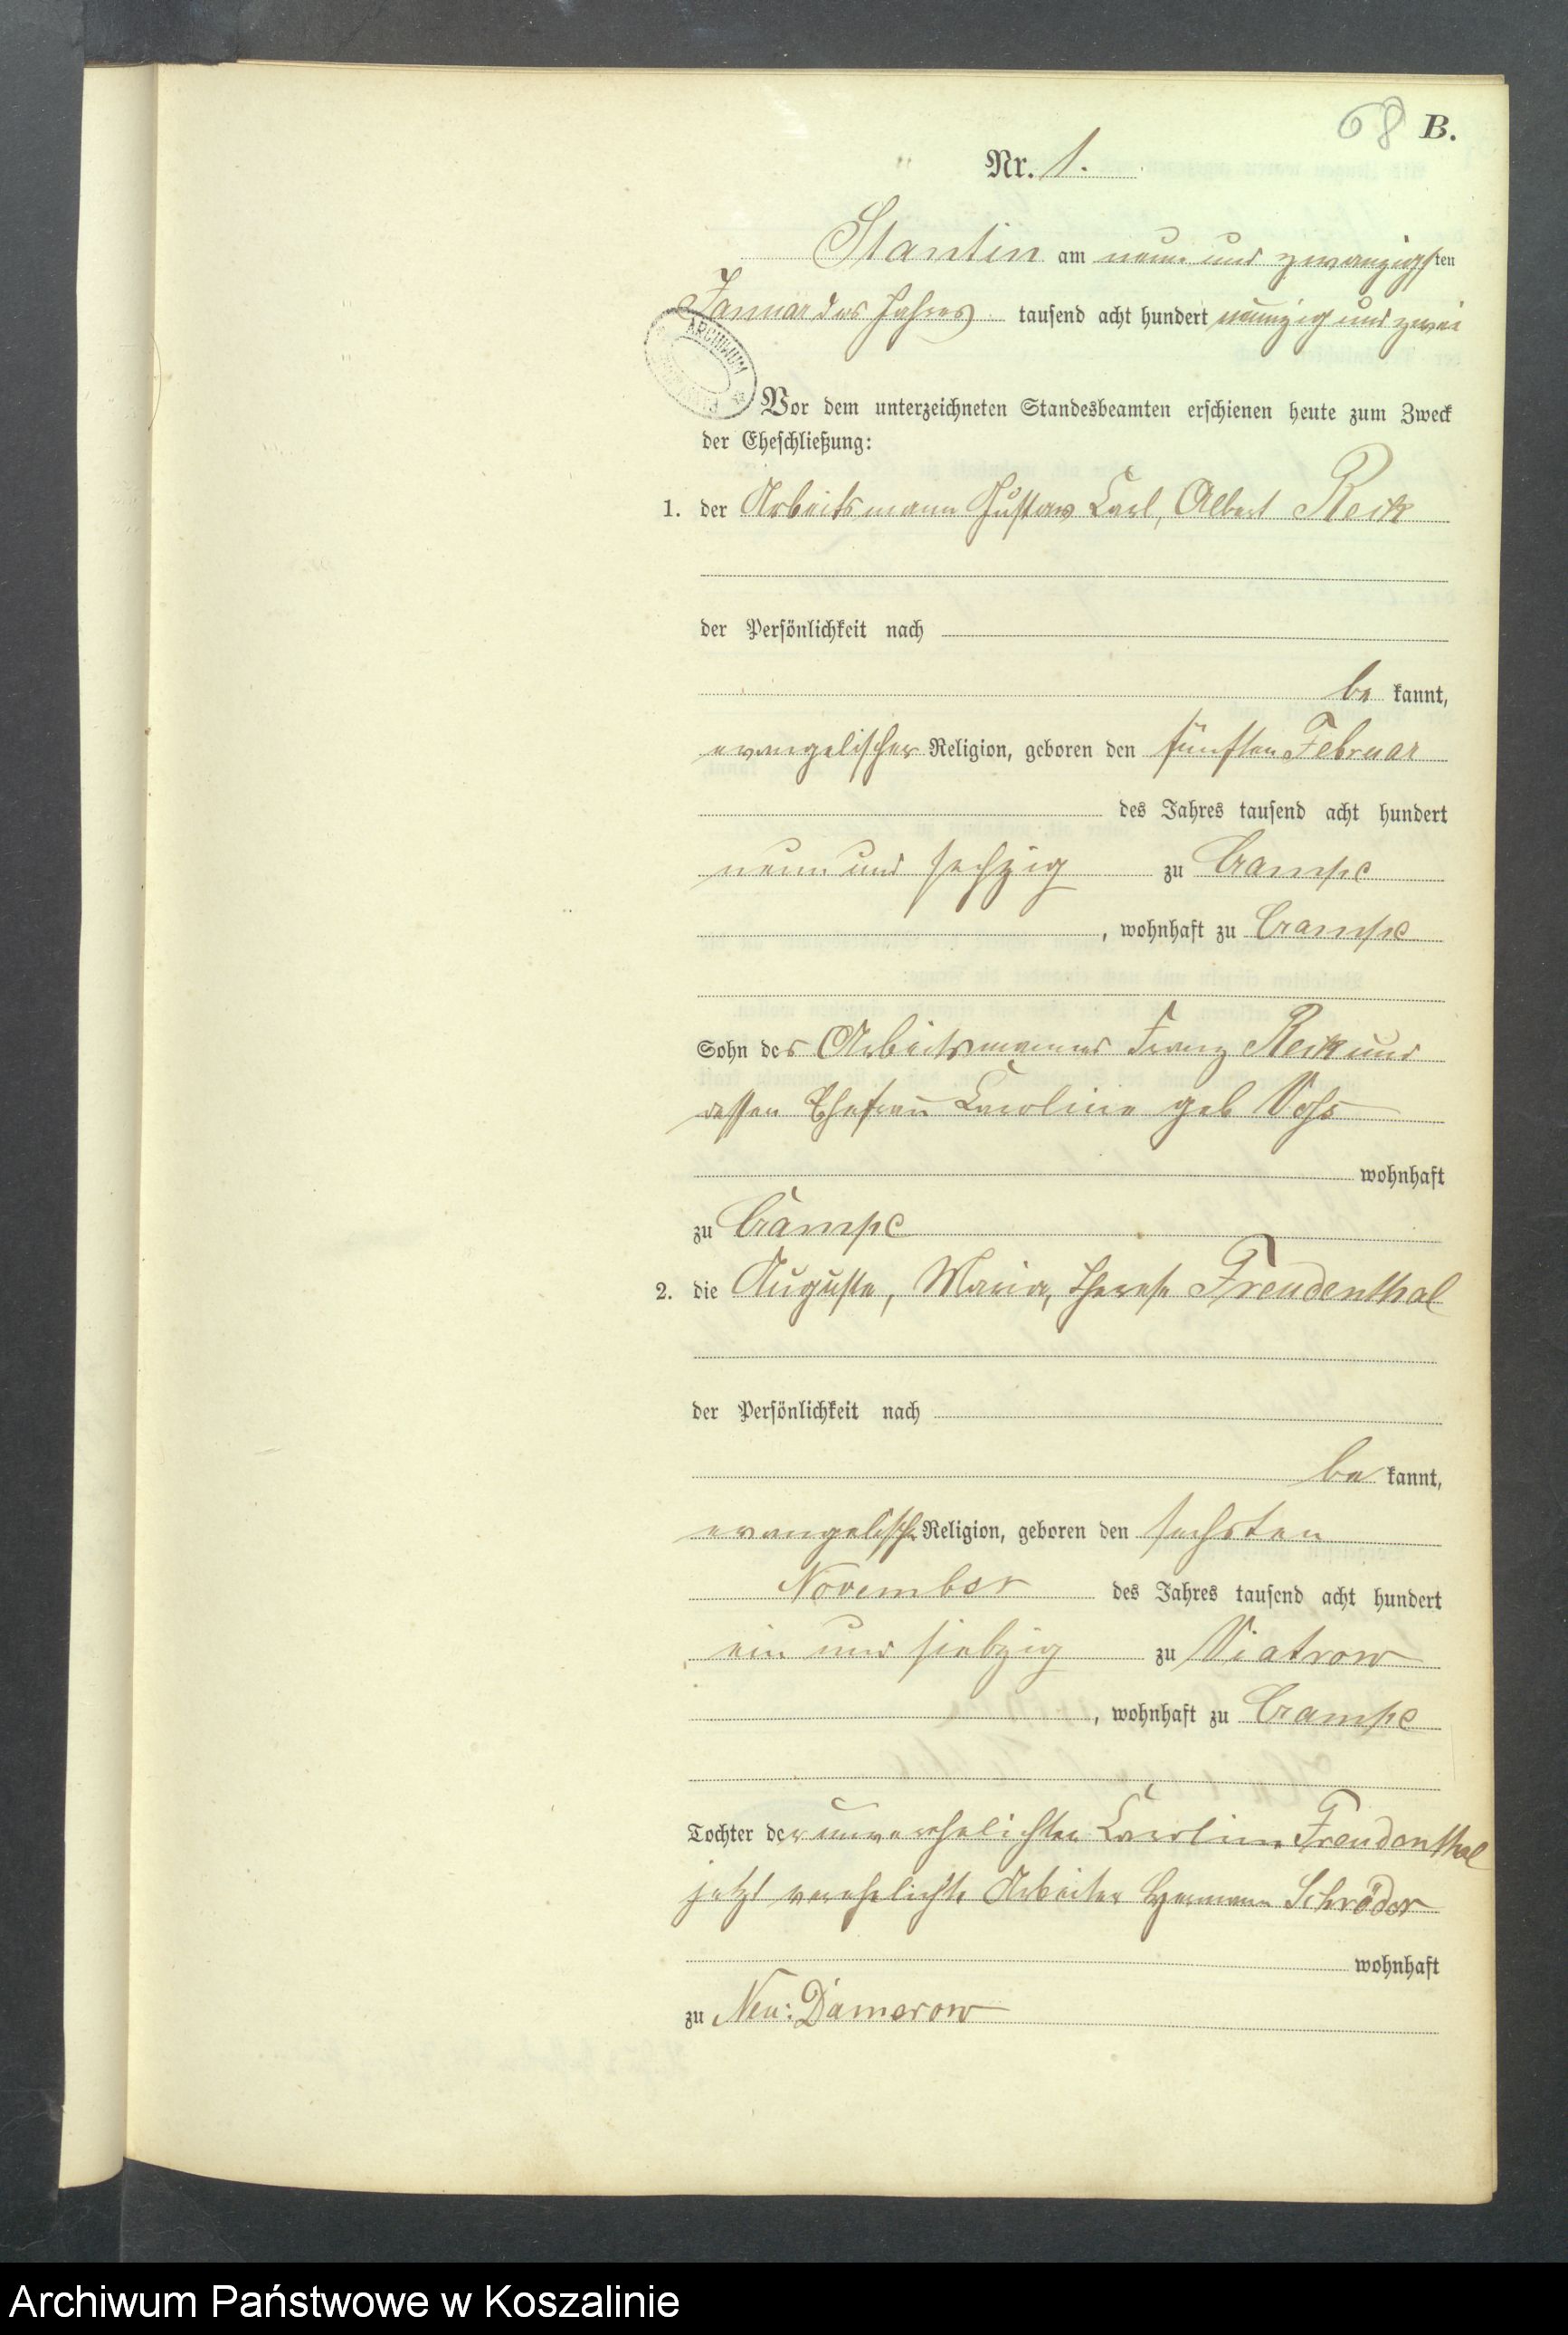 68 B.
Nr. 1.
Stantin am neun und zwanzigsten
Januar des Jahres tausend acht hundert neunzig und zwei
ARCHIWUM
Vor dem unterzeichneten Standesbeamten erschienen heute zum Zweck
der Eheschließung:
1. der Arbeitsmann Gustav Carl, Albert Reck
der Persönlichkeit nach
be kannt,
evangelischer Religion, geboren den fünften Februar
des Jahres tausend acht hundert
neun und sechzig zu Crampe
, wohnhaft zu Crampe
Sohn des Arbeitsmannes Franz Reck und
dessen Ehefrau Caroline geb Voss
wohnhaft
zu Crampe
2. die Auguste, Maria, Therese Freudenthal
der Persönlichkeit nach
be kannt,
evangelische Religion, geboren den sechsten
November des Jahres tausend acht hundert
ein und siebzig zu Viatrow
, wohnhaft zu Crampe
Tochter der unverehelichten Caroline Freudenthal
jetzt verehelichte Arbeiter Hermann Schröder
wohnhaft
zu Neu: Damerow
Archiwum Państwowe w Koszalinie